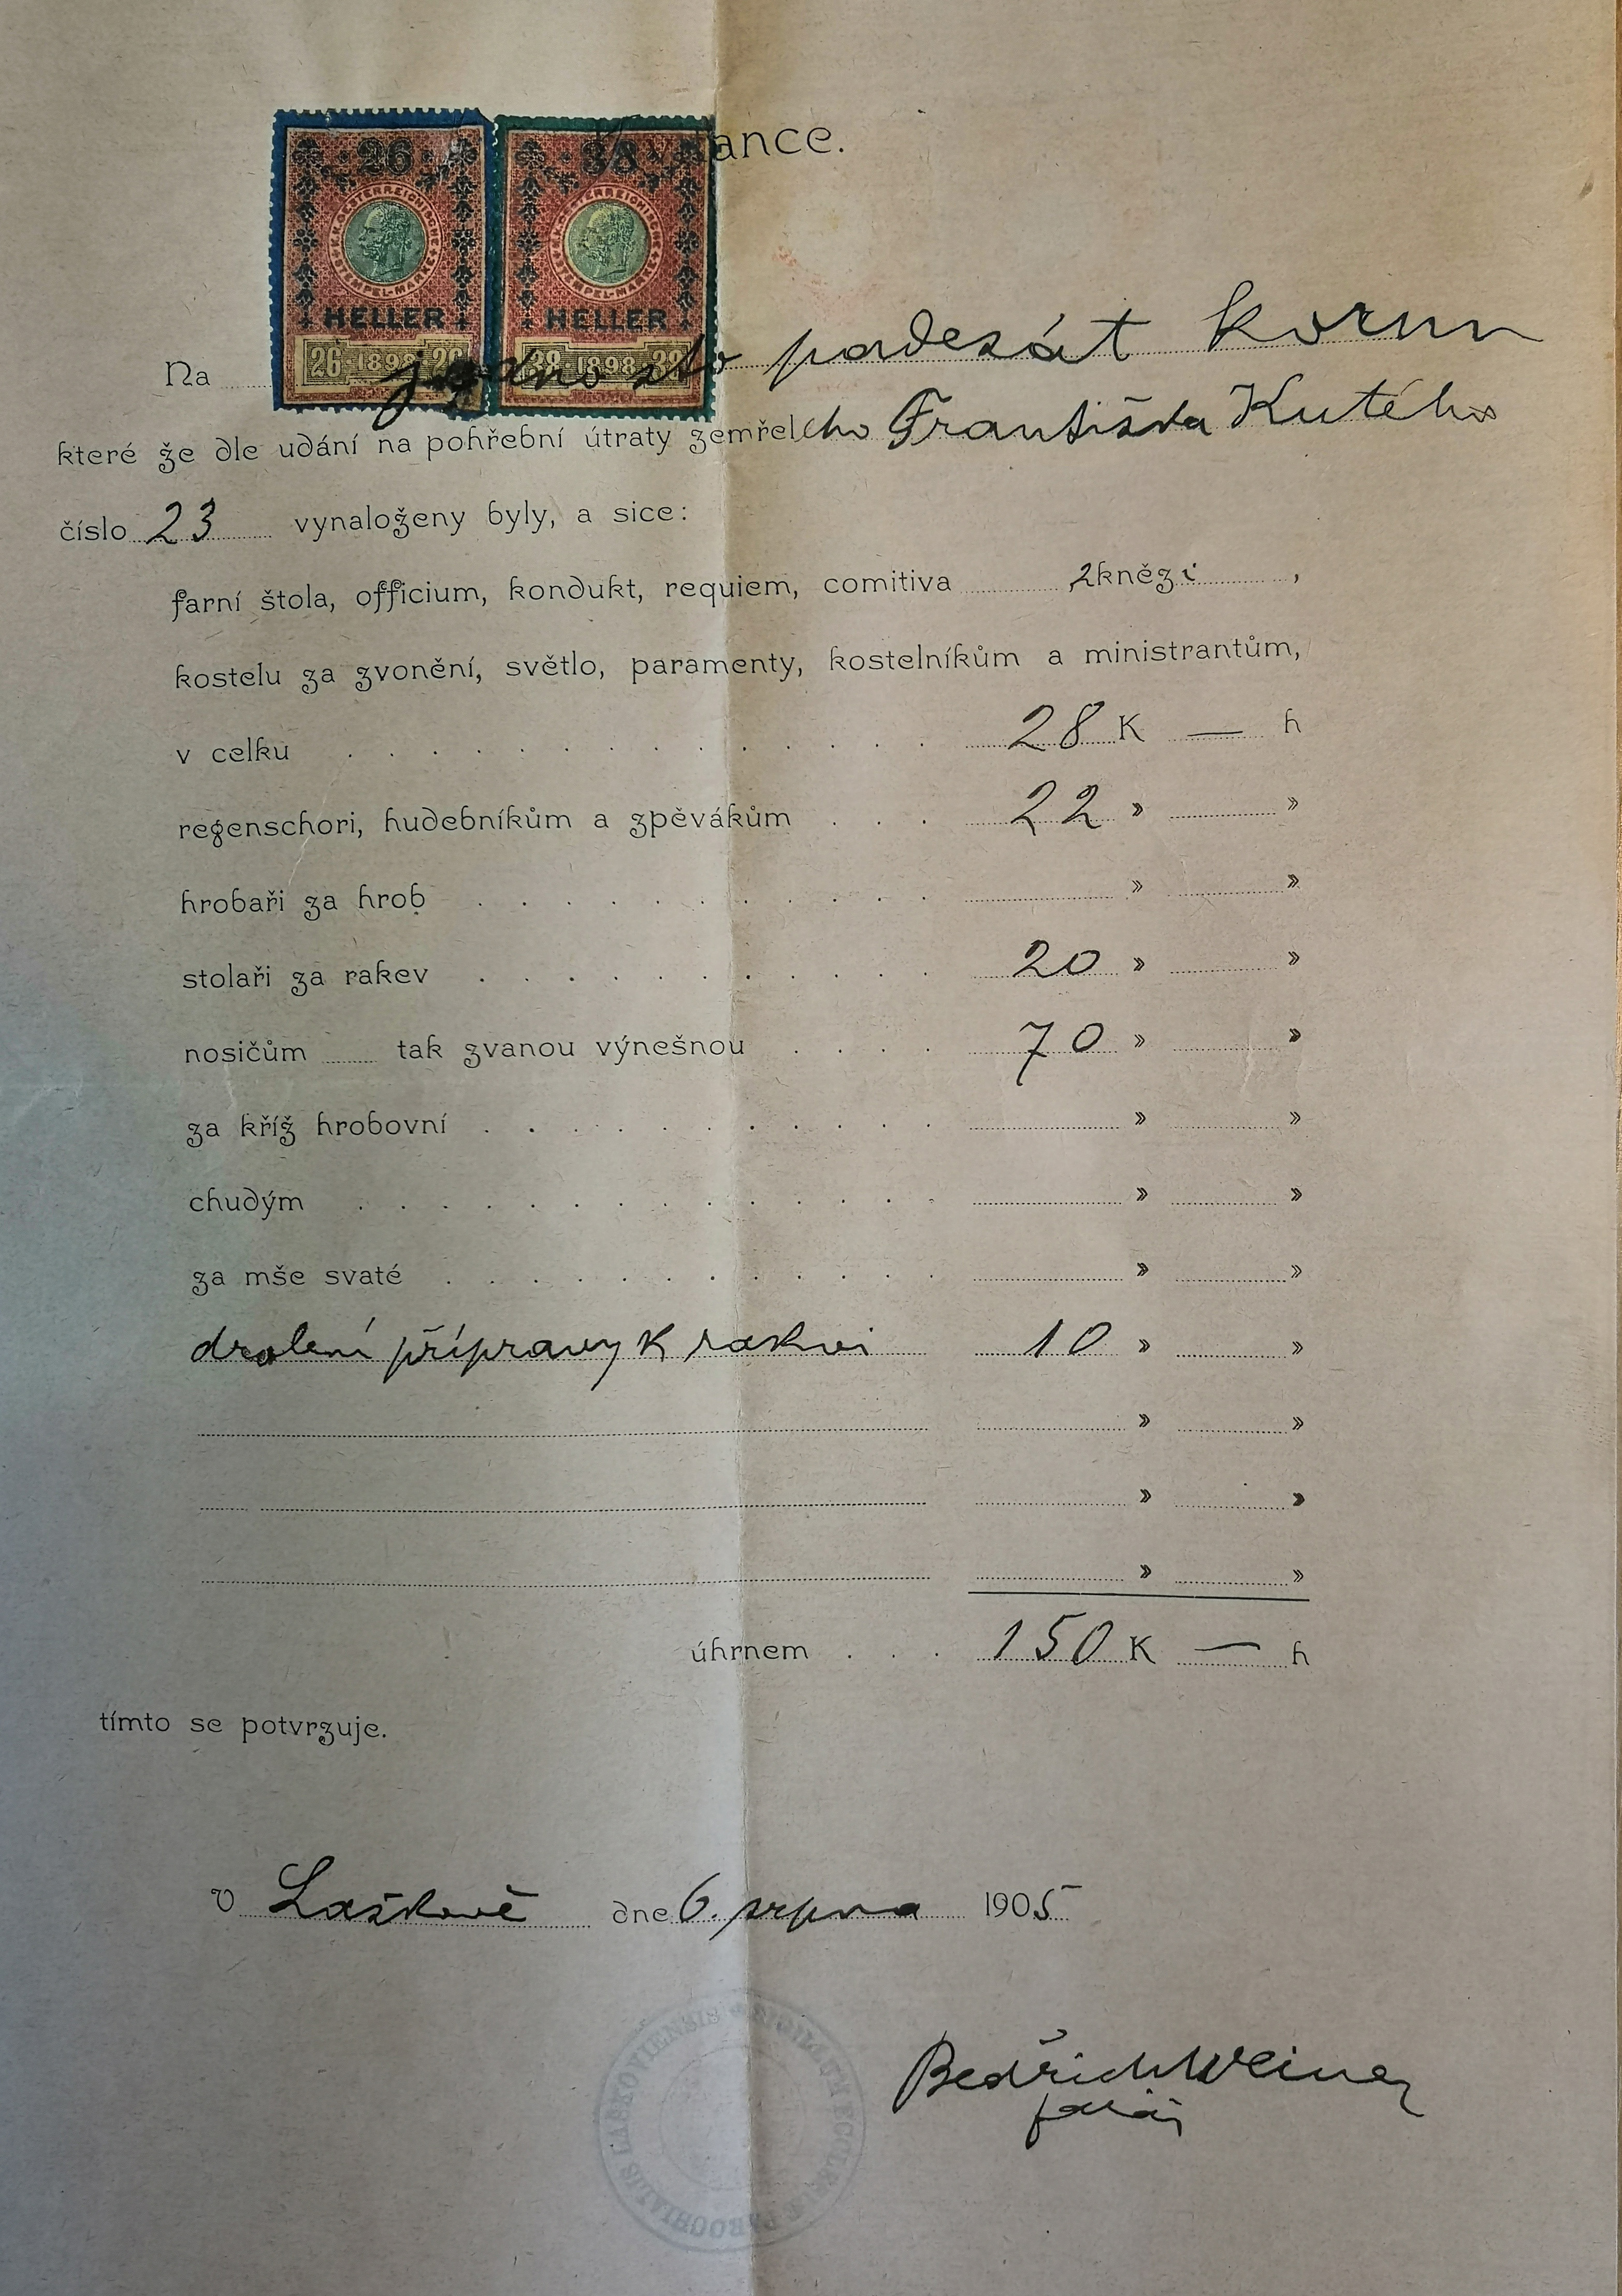 26 38
K.K. OESTERREICHISCHE STEMPEL-MARKE K.K. OESTERREICHISCHE STEMPEL-MARKE
HELLER HELLER
26 1898 26 38 1898 38
Kvitance.
Na jedno sto padesát korun
které že dle udání na pohřební útraty zemřelého Františka Kutého
číslo 23 vynaloženy byly, a sice:
farní štola, officium, kondukt, requiem, comitiva 2 kněží,
kostelu za zvonění, světlo, paramenty, kostelníkům a ministrantům,
v celku . . . . . . . . . . . . . . 28 K — h
regenschori, hudebníkům a zpěvákům . . . 22 » »
hrobaři za hrob . . . . . . . . . . . » »
stolaři za rakev . . . . . . . . . . . 20 » »
nosičům tak zvanou výnešnou . . . . 70 » »
za kříž hrobovní . . . . . . . . . . . » »
chudým . . . . . . . . . . . . . . » »
za mše svaté . . . . . . . . . . . . » »
přípravy k rakvi 10 » »
» »
» »
» »
úhrnem . . . 150 K — h
tímto se potvrzuje.
V Laškově dne 6. srpna 1905
Bedřich Weiner
farář
PAROCHIALIS LAŠKOVIENSIS